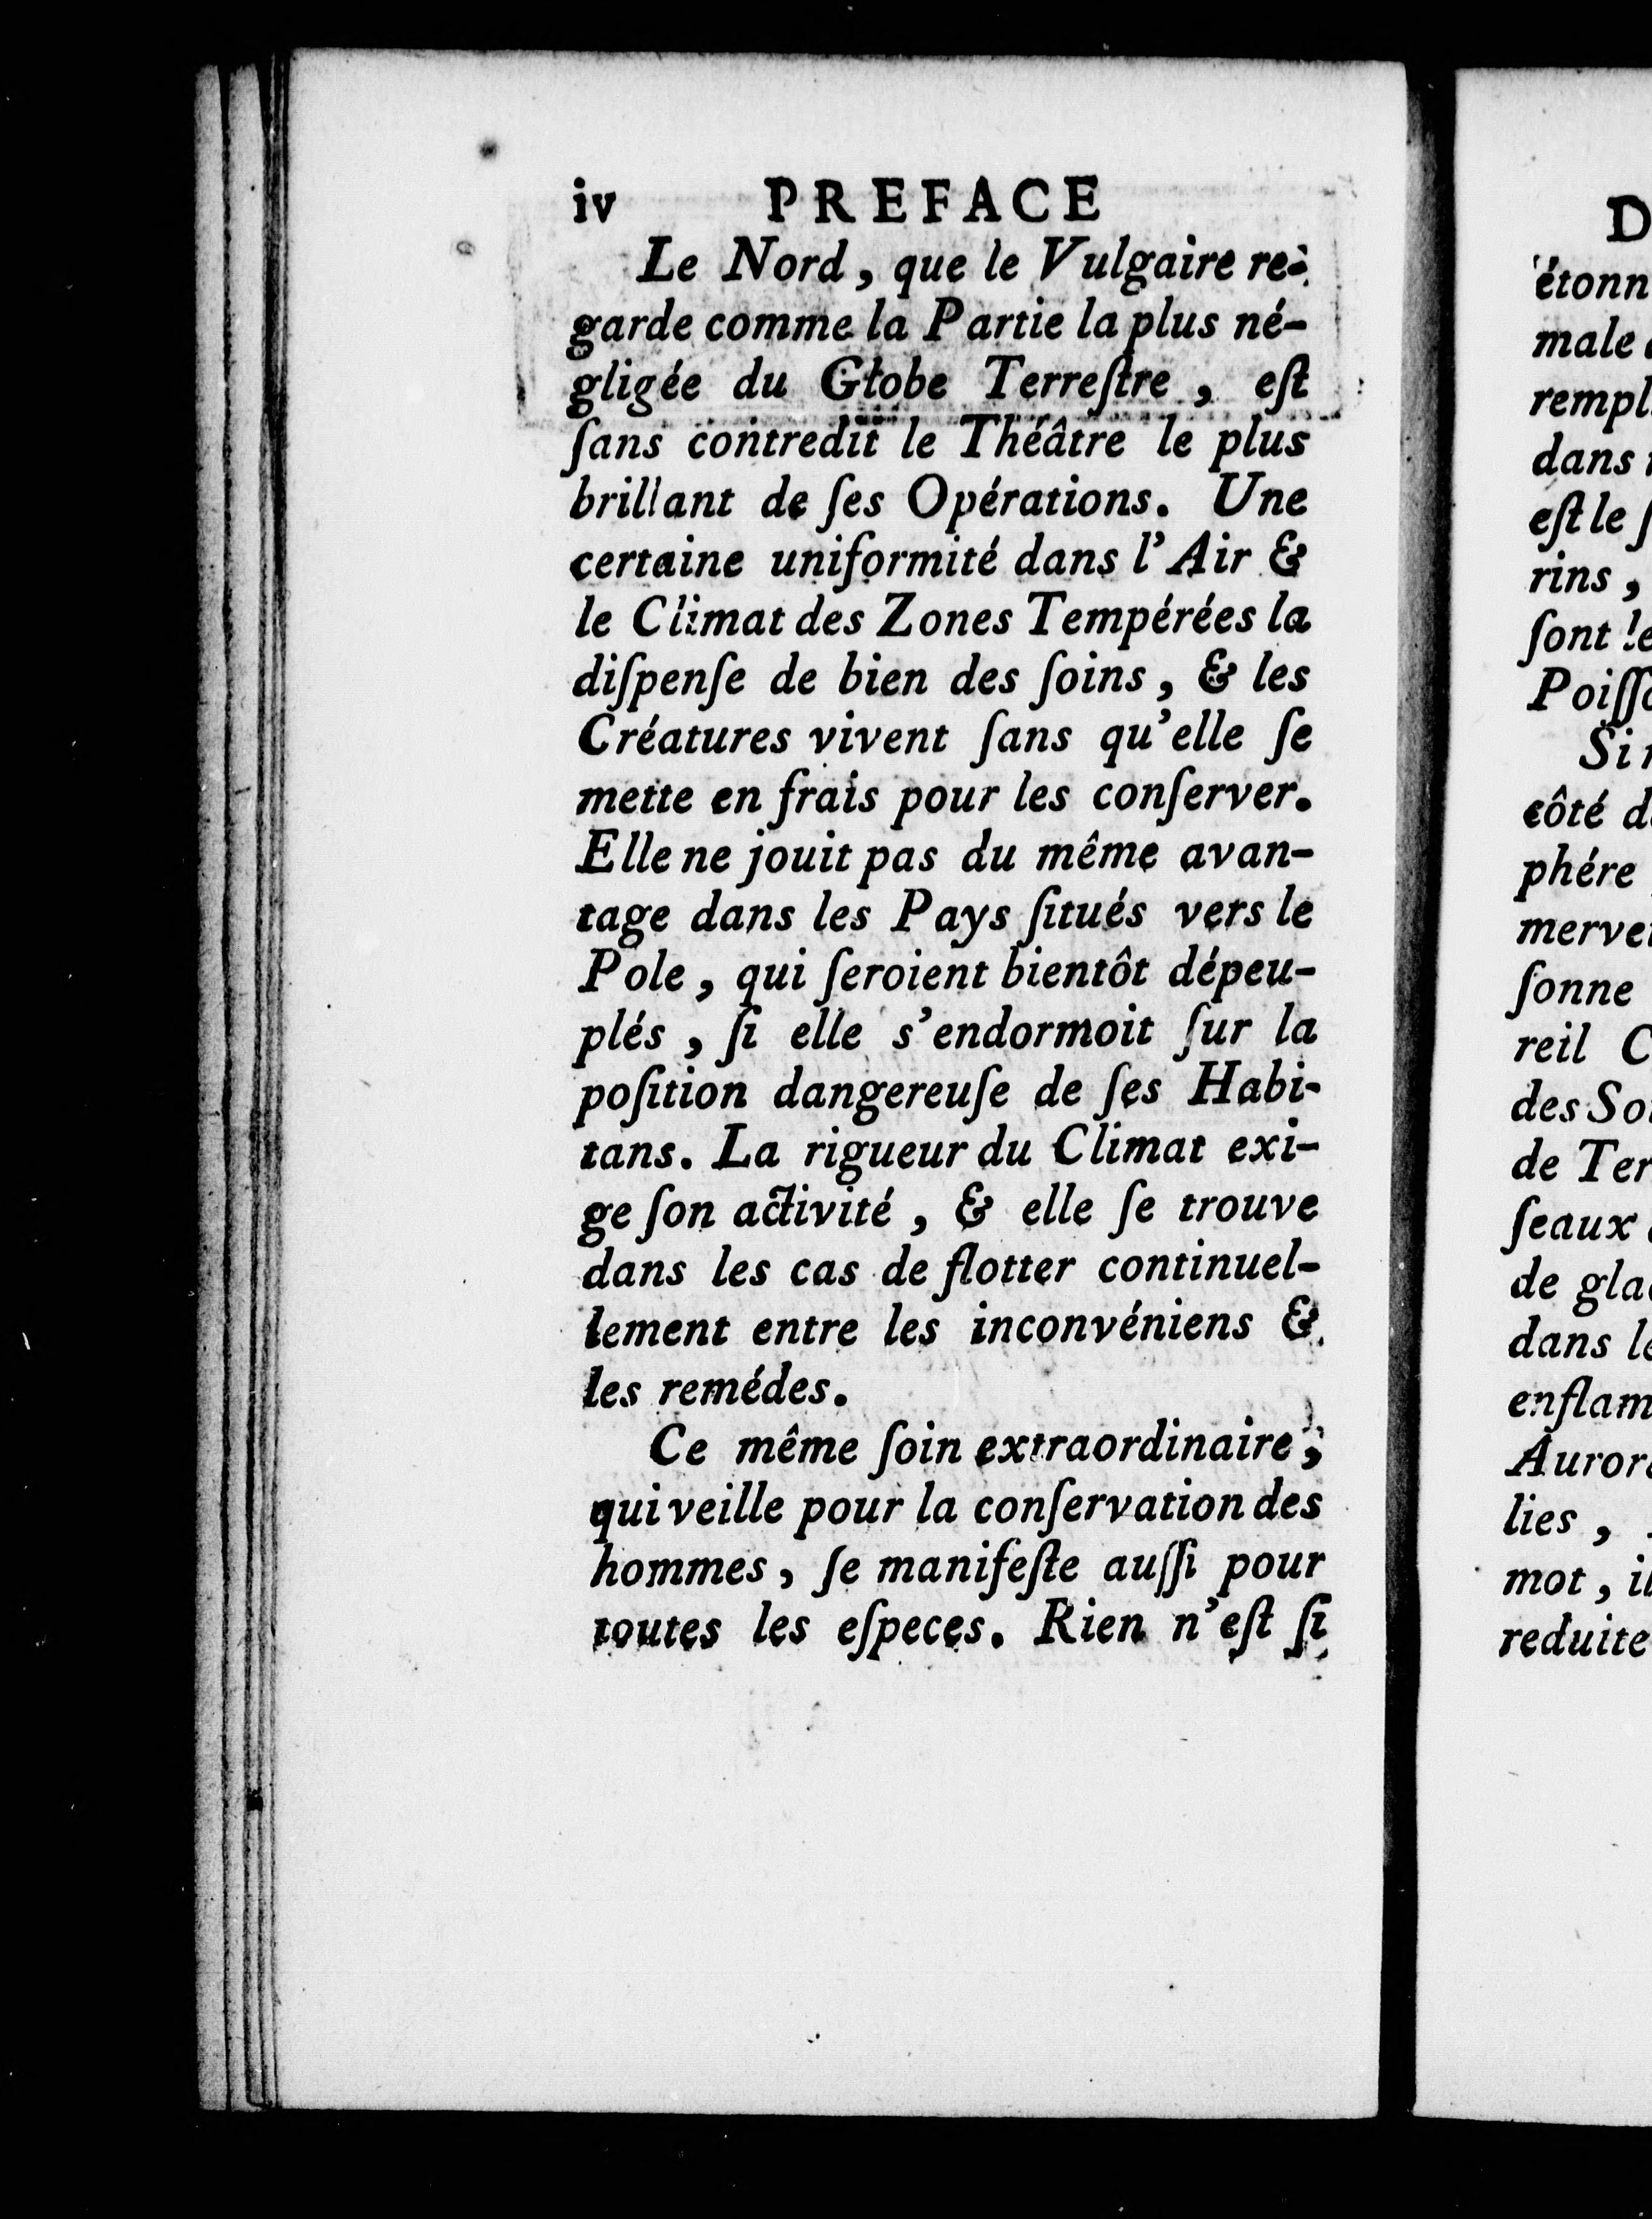 iv PREFACE
Le Nord, que le Vulgaire re-
garde comme la Partie la plus né-
gligée du Globe Terreſtre, eſt
ſans contredit le Théâtre le plus
brillant de ſes Opérations. Une
certaine uniformité dans l'Air &
le Climat des Zones Tempérées la
diſpenſe de bien des ſoins, & les
Créatures vivent ſans qu'elle ſe
mette en frais pour les conſerver.
Elle ne jouit pas du même avan-
tage dans les Pays ſitués vers le
Pole, qui ſeroient bientôt dépeu-
plés, ſi elle s'endormoit ſur la
poſition dangereuſe de ſes Habi-
tans. La rigueur du Climat exi-
ge ſon activité, & elle ſe trouve
dans les cas de flotter continuel-
lement entre les inconvéniens &
les remédes.
Ce même ſoin extraordinaire,
qui veille pour la conſervation des
hommes, ſe manifeſte auſſi pour
toutes les eſpeces. Rien n'eſt ſi
D
étonn
male
rempl
dans
eſt le ſ
rins,
ſont le
Poiſſo
Si
côté d
phére
merve
ſonne
reil C
des So
de Ter
ſeaux
de gla
dans le
enflam
Auror
lies,
mot, il
reduite